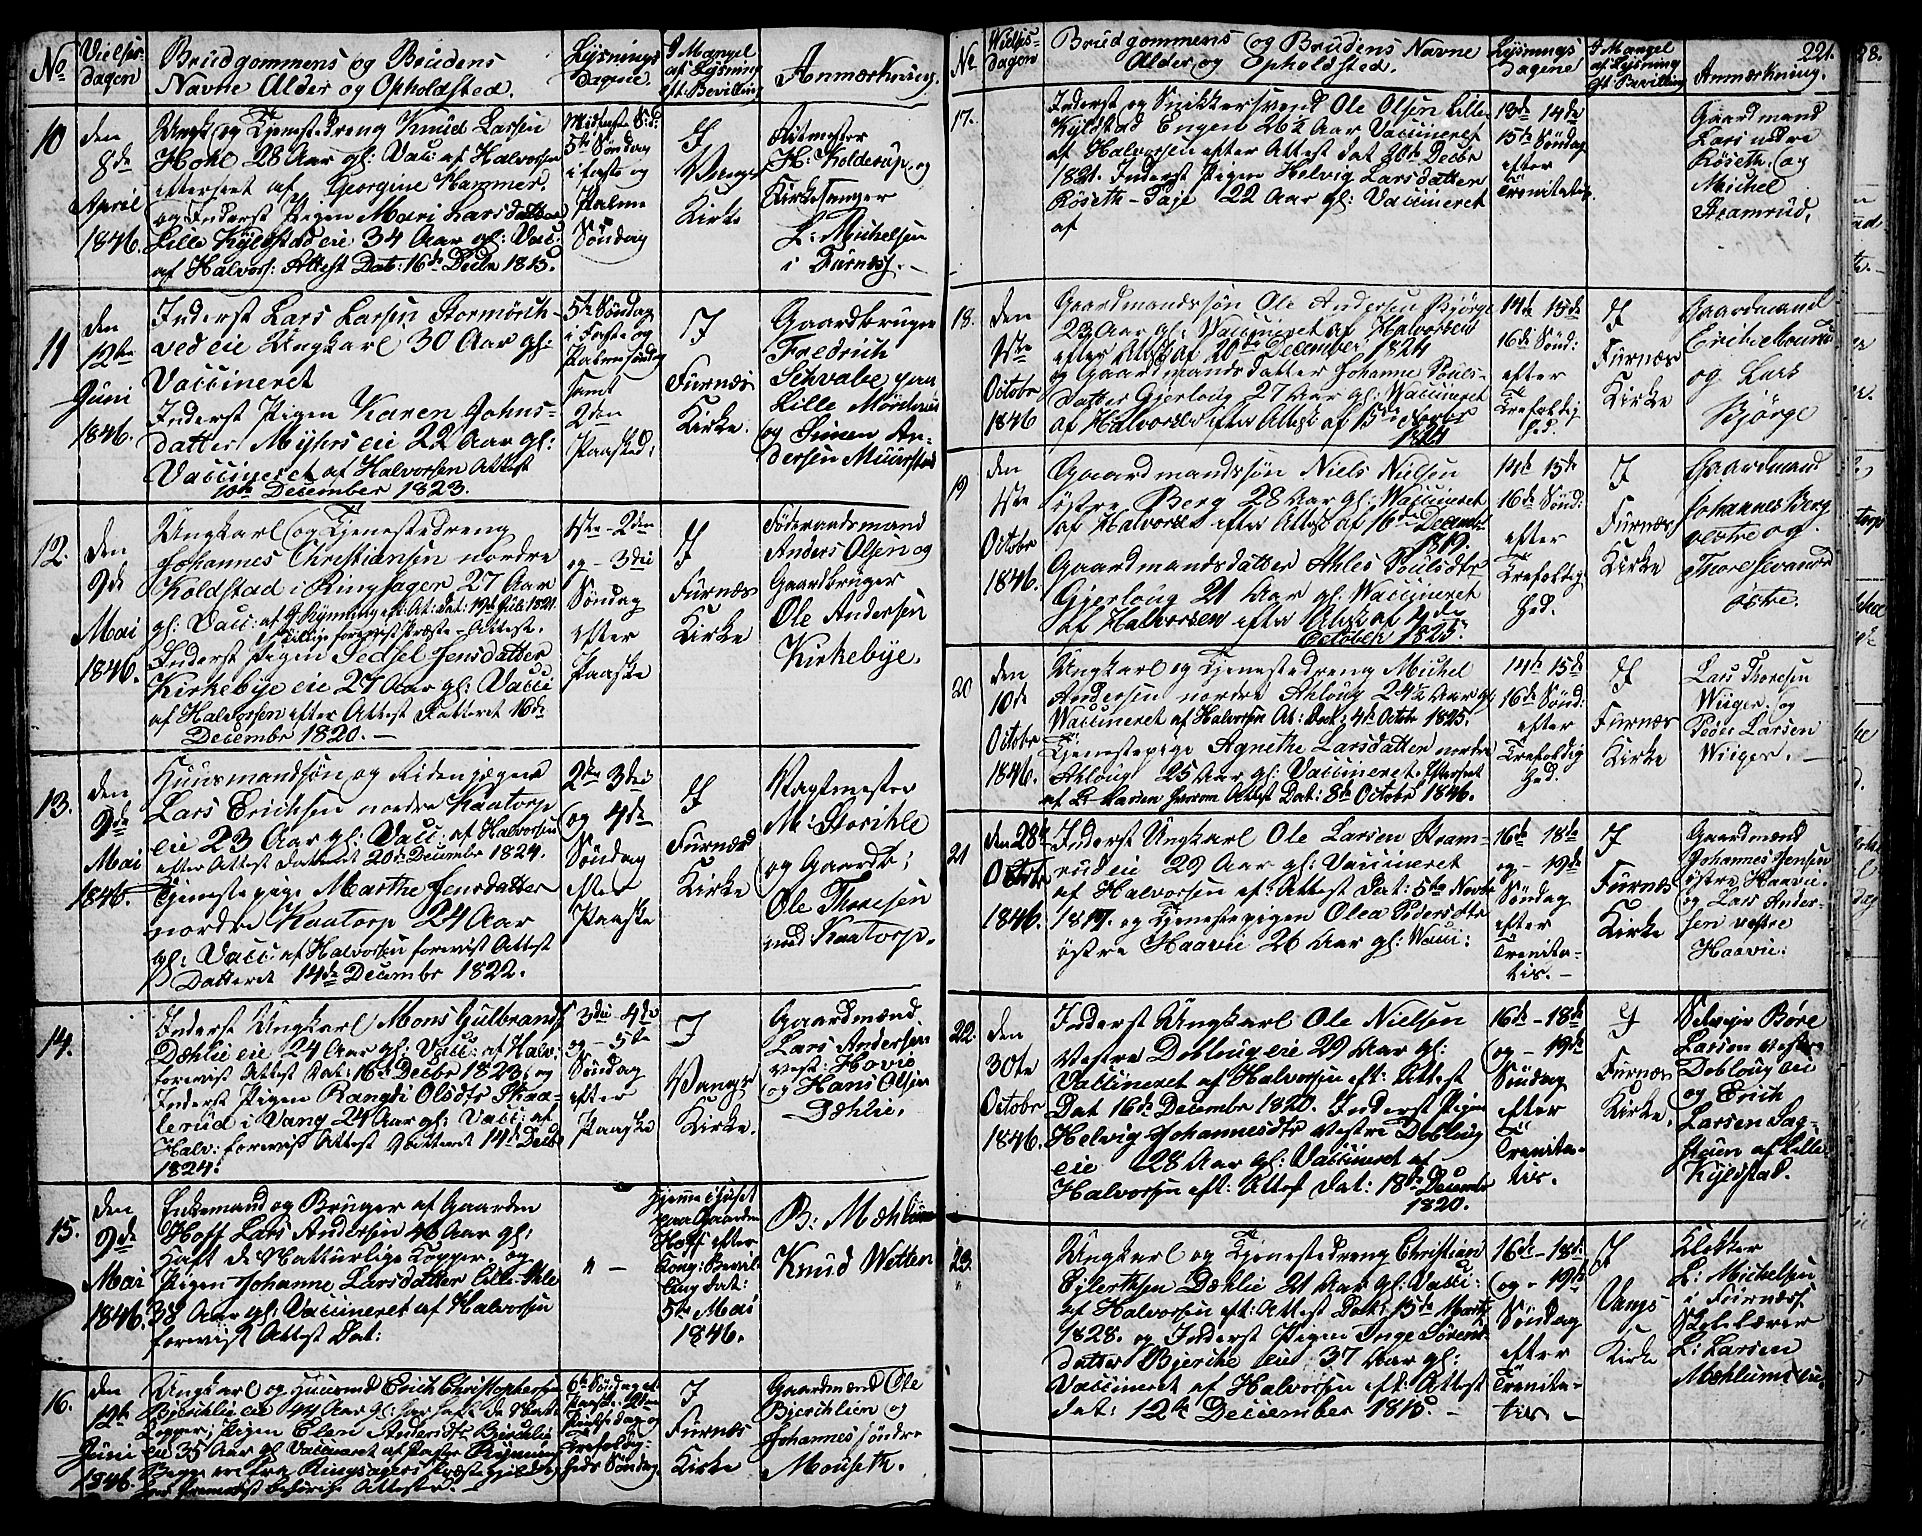 No
Vielses-
dagen
Brudgommens og Brudens
Navne Alder og Opholdsted.
Lysnings
Dagene
I Mangel
af Lysning
eft. Bevilling
Anmærkning.
10
den
8de
April
1846.
Ungk. og Tjenestedreng Knud Larsen
Hohl 28 Aar gl: Vacc: af Halvorsen
efterseet af Georgine Hammer.
og Inderst Pigen Mari Larsdatter
Lille Kyldstadeie 34 Aar gl: Vacc.
af Halvors: Attest Dat: 16de Decbr 1815.
Midfaste Sød:
5te Søndag
i Faste og
Palme
Søndag
I
Vangs
Kirke
Ritmester
H: Kolderup, og
Kirkesanger
L: Michelsen
i Furnæs. -
11
den
12te
Juni
1846.
Inderst Lars Larsen Stormørch-
vedeie Ungkarl 30 Aar gl:
Vaccineret
Inderst Pigen Karen Johns-
datter Myhrseie 22 Aar gl:
Vaccineret af Halvorsen Attest
10de December 1823.
5te Søndag
i Faste og
Palmesøndag
samt
2den
Paasked:
I
Furnæs
Kirke.
Gaardbruger
Fredrich
Schvabe paa
Lille Mørchved
og Simen An-
dersen Muurstad
12.
den
9de
Mai
1846.
Ungkarl og Tjenestedreng
Johannes Christiansen nordre
Koldstad i Ringsager 27 Aar
gl: Vacc: af Rynning eft: At: Dat: 19de Juli 1821.
forevist Præste-Attest.
Inderst Pigen Sedsel Jensdatter
Kirkebye eie 27 Aar gl: Vacci
af Halvorsen efter Attest Datteret 16de
Decembr 1820. -
1ste - 2den
og - 3die
Søndag
efter
Paaske
I
Furnæs
Kirke
Føderaadsmand
Anders Olsen og
Gaardbruger
Ole Andersen
Kirkebye.
13.
den
9de
Mai
1846.
Huusmandsøn og Ridenjæger
Lars Ericksen nordre Kaatorp
eie 23 Aar gl: Vacc: af Halvorsen
efter Attest Datteret 20de Decembr 1824.
Tjenestepige Marthe Jensdatter
nordre Kaatorp 24 Aar
gl: Vacc: af Halvorsen forevist Attest
Datteret 14de Decembr 1822.
2den 3die
og 4de
Søndag
efter
Paaske
I
Furnæs
Kirke
Vagtmester
M: Storihle
og Gaardb:
Ole Thoresen
ned Kaatorp.
14.
Inderst Ungkarl Mons Gulbrands
Dæhlie eie 24 Aar gl: Vacc: af Halv:
forevist Attest Dat: 16de Decbr 1823, og
Inderst Pigen Rangdi Olsdtr Skaa-
lerud i Vang 24 Aar gl: Vacc: af
Halv: forevist Attest Datteret 14de Decbr
1824.
3die - 4de
og - 5te
Søndag
efter
Paaske
I
Vangs
Kirke.
Gaardmænd
Lars Andersen
vest: Hovie
og Hans Olsen
Dæhlie.
15.
den
9de
Mai
1846.
Enkemand og Bruger af Gaarden
Hoff Lars Andersen 46 Aar gl:
haft de Natturlige Kopper, og
Pigen Johanne Larsdatter Lille-Ihle
38 Aar gl: Vaccineret af Halvorsen
forevist Attest Dat:
" -
Hjemme i Huset
paa Gaarden
Hoff efter
Kong: Bevil-
ling Dat:
5te Mai
1846.
B: Mæhlum
Knud Wetten
16.
den
12te
Juni
1846.
Ungkarl og Huusmd Erich Christophersen
Bjerchlie eie 44 Aar gl: har haft de Natt:
Kopper; Pigen Elen Andersdtr Bierchlie
eie 35 Aar gl: Vaccineret af Pastor Rynning
Begge ere fra Ringsagers Præstegjeld og
har fremvist behørige Attester. -
6te Søndag eft
Paaske - 2den
Pintse Dag og
Trefoldig-
heds Søndag.
I
Furnæs
Kirke
Gaardmænd Ole
Bjerchlien og
Johannes søndre
Mouseth.
221.
No
Vielses-
dagen
Brudgommens og Brudens Navne
Alder og Opholdsted.
Lysnings
Dagene
I Mangel
af Lysning
eft Bevilling
Anmærkning.
17.
Inderst og Snikkersvend Ole Olsen Lille-
Kyldstad Engen 26½ Aar Vaccineret
af Halvorsen efter Attest dat 20de Decbr
1821. Inderst Pigen Helvig Larsdatter
Røseth-Paje 22 Aar gl: Vaccineret
af
13de 14de
15de Søndag
efter
Trenitatis
Gaardmand
Lars nedre
Røseth og
Michel
Bramrud.
18.
den
1ste
Octobr
1846
Gaardmandssøn Ole Andersen Bjørge
23 Aar gl: Vaccineret af Halvorsen
efter Attest af 20de December 1824
og Gaardmandsdatter Johanne Pouls-
datter Gjerloug 27 Aar gl: Vaccineret
af Halvorsen efter Attest af 15de
1821
14de 15de
16de Sønd:
efter
Trefoldig-
hed.
I
Furnæs
Kirke
Gaardmand
og Lars
Bjørge
19
den
1ste
Octobr
1846.
Gaardmandssøn Niels Nielsen
østre Berg 28 Aar gl: Vaccineret
af Halvorsen efter Attest af 16de Decembr
1819.
Gaardmandsdatter Ahles Poulsdtr
Gjerloug 21 Aar gl: Vaccineret
af Halvorsen efter Attest af 4de
October 1825.
14de 15de
16de Sønd:
efter
Trefoldig-
hed.
I
Furnæs
Kirke
Gaardmand
Johannes Berg
vestre og
Thore
østre.
20
den
10de
Octobr
1846.
Ungkarl og Tjenestedreng Michel
Andersen nordre Ahloug 24½ Aar gl
Vaccineret af Halvorsen At: Dat: 4de Octobr 1825.
Tjenestepige Agnethe Larsdatter nordre
Ahloug 25 Aar gl: Vaccineret. Efterseet
af L. Larsen Attest Dat: 8de Octobr 1846.
14de 15de
16de Sønd:
efter
Trefoldig
hed.
I
Furnæs
Kirke
Lars Thoresen
Wiiger og
Peder Larsen
Wiiger. -
21
den 28de
Octobr
1846.
Inderst Ungkarl Ole Larsen Kram-
rud eie 29 Aar gl: Vaccineret
af Halvorsen ef: Attest Dat: 5te Novbr
1817. og Tjenestepigen Olea Pedersdtr
østre Haavie 26 Aar gl: Vacci:
16de - 18de
og - 19de
Søndag
efter
Trenita-
tis. -
I
Furnæs
Kirke
Gaardmænd
Johannes Jensen
østre Haavie
og Lars Ander-
sen vestre
Haavie.
22.
den
30te
Octobr
1846.
Inderst Ungkarl Ole Nielsen
Vestre Dobloug eie 29 Aar gl:
Vaccineret af Halvorsen eft: Attest
Dat 16de Decembr 1820. Inderst Pigen
Helvig Johannesdtr Vestre Dobloug
eie 28 Aar gl: Vaccineret af
Halvorsen eft: Attest Dat: 18de Decembr
1820.
16de - 18de
og - 19de
Søndag
efter
Trenita-
tis.
I
Furnæs
Kirke.
Selveier Børe
Larsen vestre
Dobloug eie
og Erich
Larsen Sag-
stuen af Lille
Kyldstad.
23.
Ungkarl og Tjenestedreng Christian
Ejlertsen Dæhlie 21 Aar gl: Vacci:
af Halvorsen eft: Attest Dat: 15de Marts
1828. og Inderst Pigen Inge Sørens-
datter Bjerche eie 37 Aar gl:
Vaccineret af Halvorsen eft: Attest
dat: 12te December 1815. -
16de - 18de
og - 19de
Søndag
efter
Trenita-
tis. -
I
Vangs
Kirke
Klokker
L: Michelsen
i Furnæs
Skolelærer
L: Larsen
Mæhlumseie.